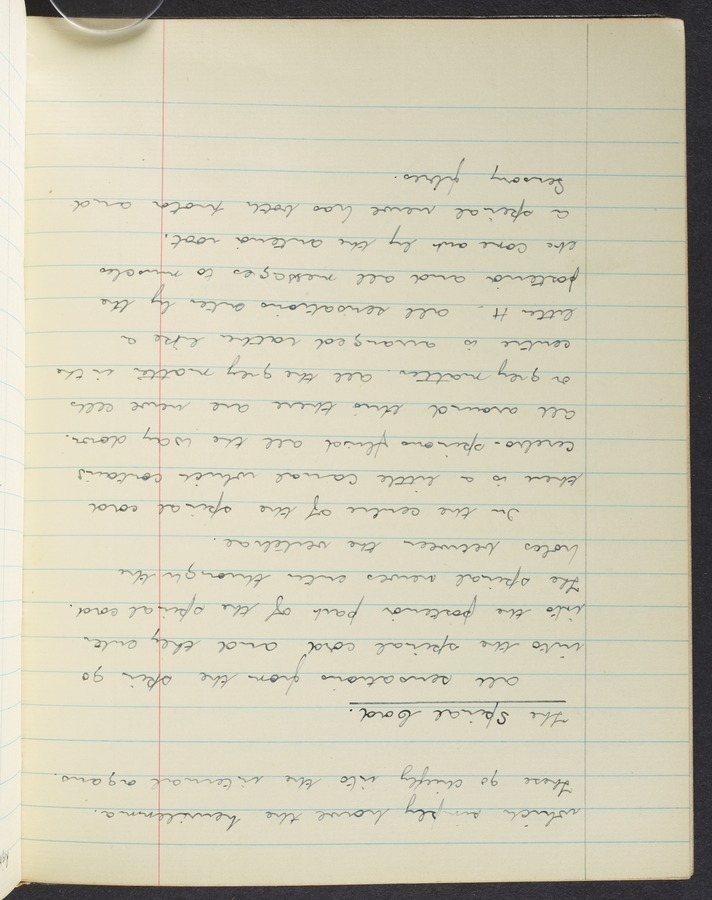 which simply have the neurilemma.
These go chiefly into the internal organs.
The Spinal Cord.
All sensations from the skin go
into the spinal cord and they enter
into the posterior part of the spinal cord.
The spinal nerves enter through the
holes between the vertebrae.
In the centre of the spinal cord
there is a little canal which contains
cerebro-spinous fluid all the way down.
All around this there are nerve cells
or grey matter. All the grey matter in the
centre is arranged rather like a
letter H - All sensations enter by the
posterior and all messages to muscles
etc come out by the anterior root.
A spinal nerve has both motor and
sensory fibres.